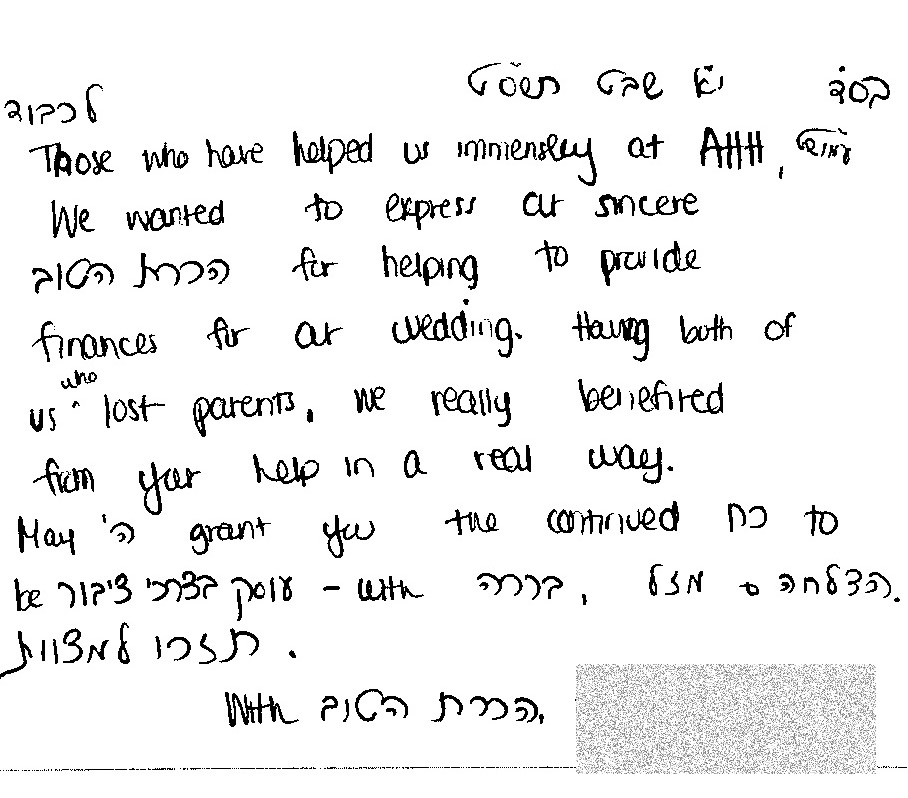 בס"ד י"א שבט תשס"ט
לכבוד
Those who have helped us immensley at AHH,
We wanted to express our sincere
הכרת הטוב for helping to provide
finances for our wedding. Having both of
us ^who lost parents, we really benefited
from your help in a real way.
May ה' grant you the continued כח to
be עוסק בצרכי ציבור - with ברכה, מזל & הצלחה.
תזכו למצוות.
With הכרת הטוב,